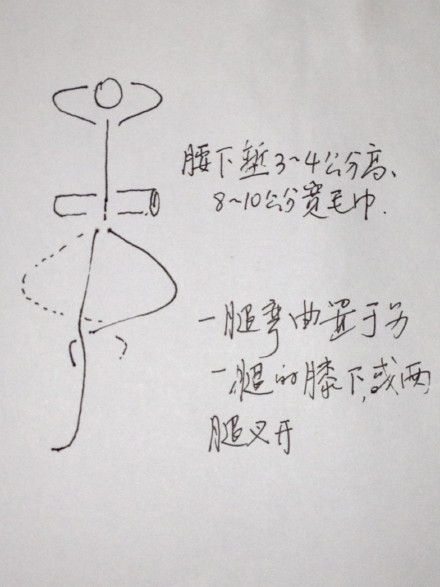 腰下垫3~4公分高、
8~10公分宽毛巾.
一腿弯曲置于另
一腿的膝下,或两
腿叉开